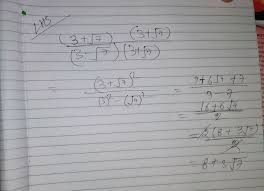 LHS
(3+√7) (3+√7)
(3-√7) (3+√7)
= (3+√7)² / (3)² - (√7)² = 9+6√7+7 / 9-7
= 16+6√7 / 2
= 2(8+3√7) / 2
= 8+3√7